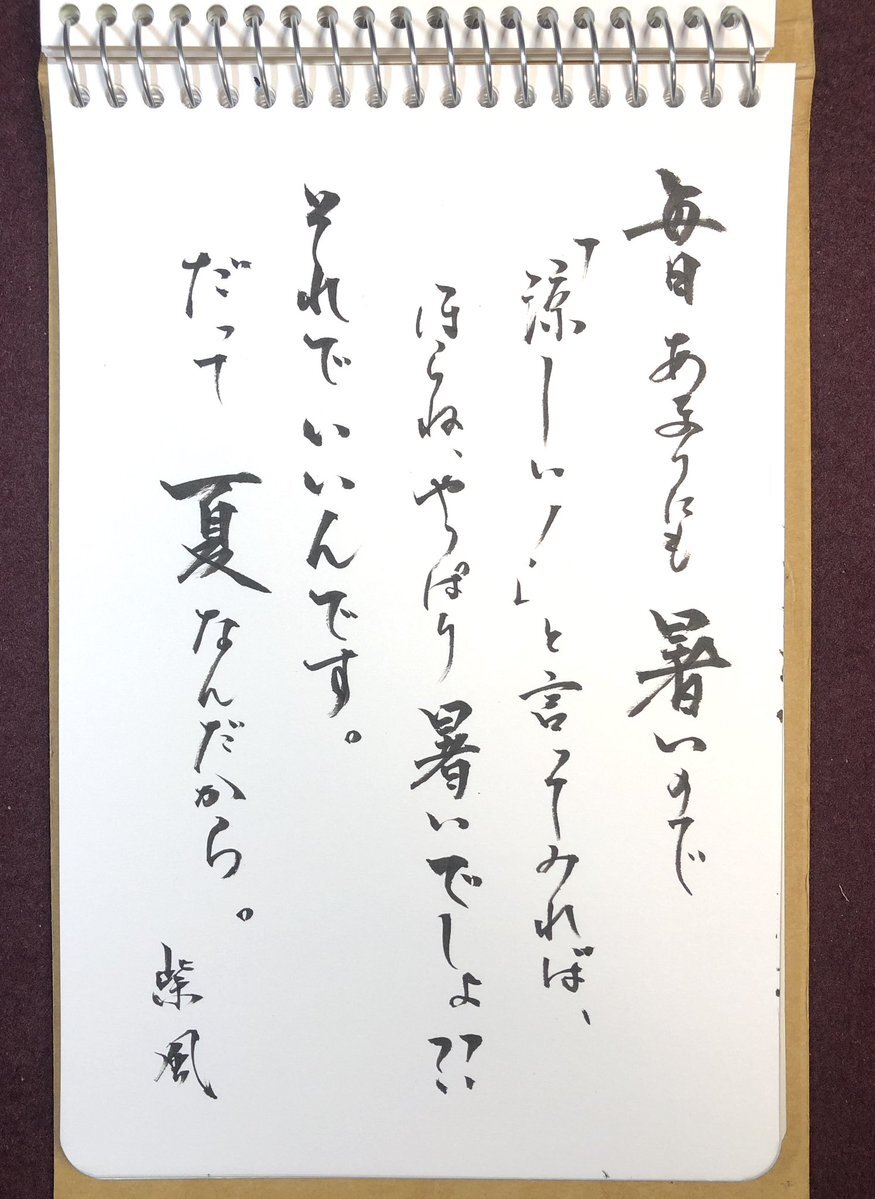 毎日あまりにも暑いので
「涼しい!」と言ってみれば、
ほらね、やっぱり暑いでしょ??
それでいいんです。
だって夏なんだから。
紫風